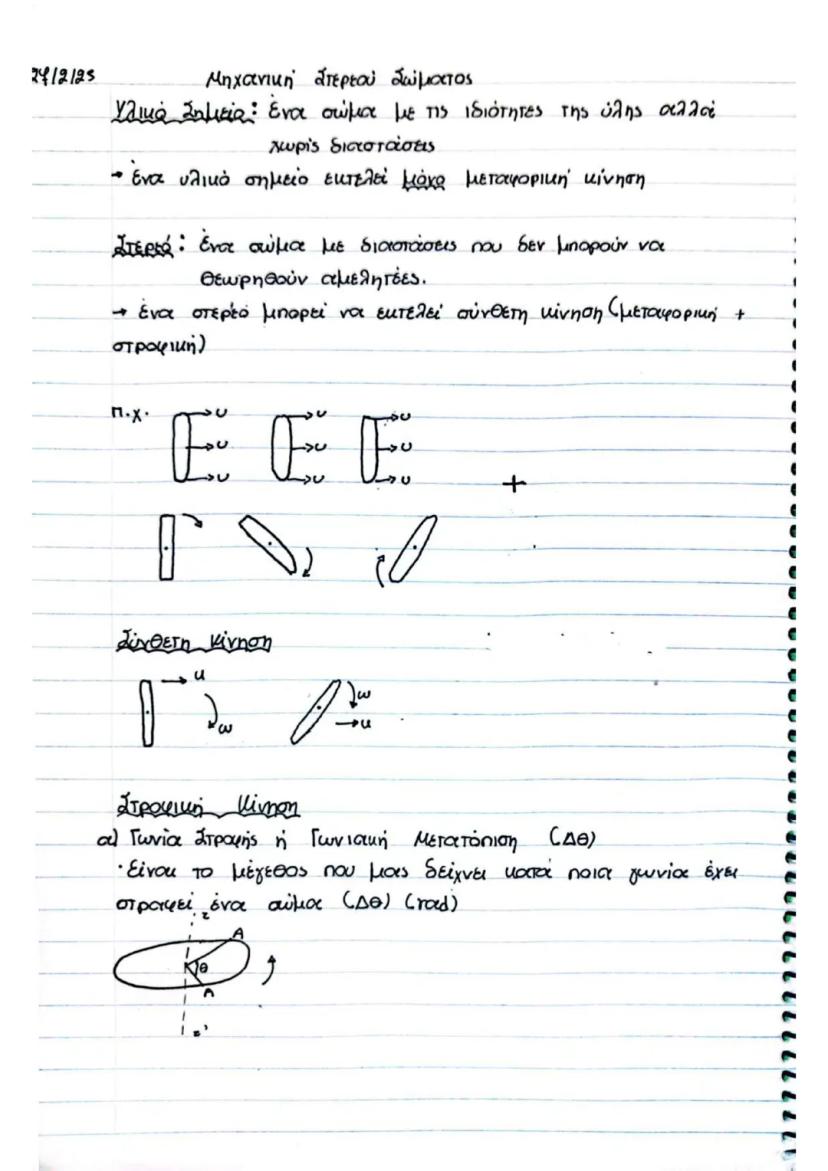 27/2/25
Μηχανική Στερεού Σώματος
Υλικό Σημείο: ένα σώμα με τις ιδιότητες της ύλης αλλά
χωρίς διαστάσεις
→ ένα υλικό σημείο εκτελεί μόνο μεταφορική κίνηση
Στερεό: ένα σώμα με διαστάσεις που δεν μπορούν να
θεωρηθούν αμελητέες.
→ ένα στερεό μπορεί να εκτελεί σύνθετη κίνηση (μεταφορική +
στροφική)
π.χ. →υ →υ →υ
→υ →υ →υ
→υ →υ →υ
+
Σύνθετη κίνηση
→ u
ω
ω
→u
Στροφική Κίνηση
α) Γωνία Στροφής ή Γωνιακή Μετατόπιση (Δθ)
· Είναι το μέγεθος που μας δείχνει κατά ποια γωνία έχει
στραφεί ένα σώμα (Δθ) (rad)
z
A
θ
A
z'